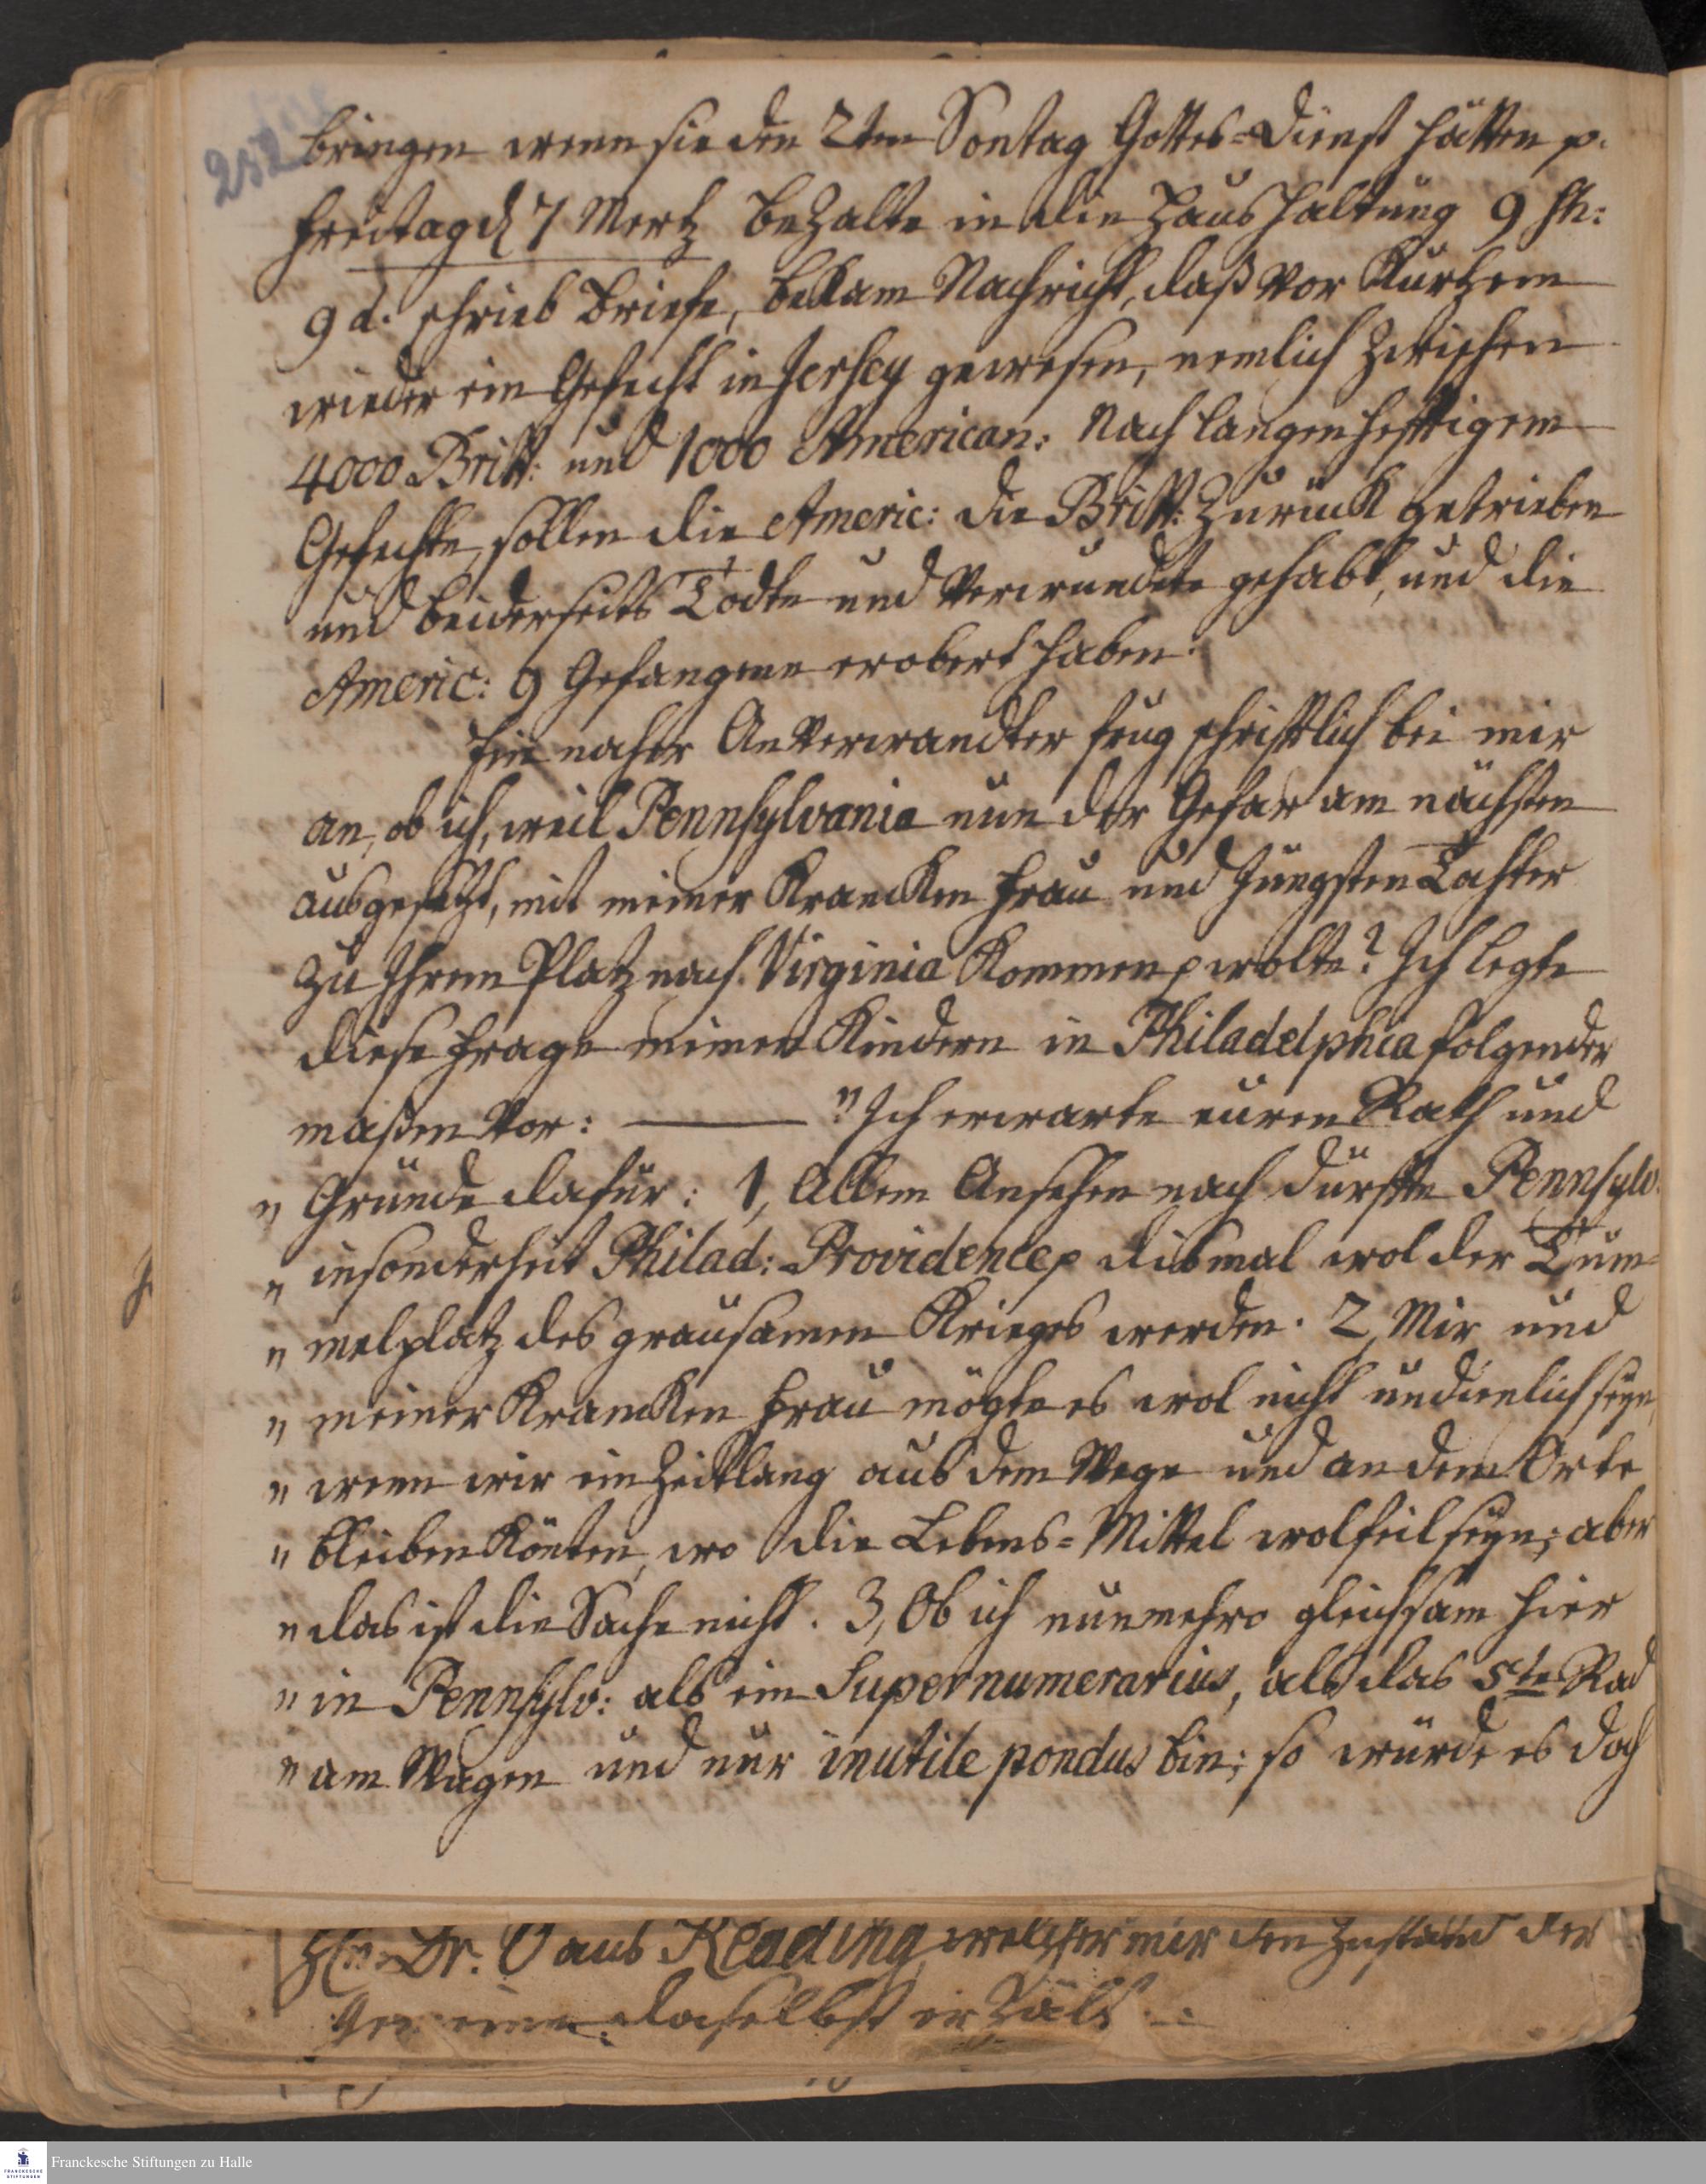 252
bringen wenn sie den 2ten Sontag Gottes=Dienst hätten p.
Freitag d 7 Mertz bezalte in die Haushaltung 9 sh:
9 d. schrieb Briefe, bekam Nachricht, daß vor Kurtzem
wieder ein Gefecht in Jersey gewesen, nemlich zwischen
4000 Britt: und 1000 American: Nach langen hefftigem
Gefechte, sollen die Americ: die Britt: zurück getrieben
und beiderseits Todte und Verwundete gehabt, und die
Americ: 9 Gefangene erobert haben.
Ein naher Anverwandter frug schriftlich bei mir
an, ob ich, weil Pennsylvania nun der Gefar am nächsten
ausgesetzt, mit meiner Krancken Frau und Jüngsten Tochter
zu Ihrem Platz nach Virginia kommen p wolte? Ich legte
diese Frage meinen Kindern in Philadelphia folgender
maßen vor: —— "Ich erwarte euren Rath und
" Gründe dafür: 1, Allem Ansehen nach dürffte Pennsylv:
" insonderheit Philad: Providence p dismal wol der Tum=
" melplatz des grausamen Krieges werden. 2, Mir und
" meiner Krancken Frau mögte es wol nicht undienlich seyn,
" wenn wir ein Zeitlang aus dem Wege und an dem Orte
" bleiben könten, wo die Lebens=Mittel wolfeil seyn; aber
" das ist die Sache nicht. 3, Ob ich nunmehro gleichsam hier
" in Pennsylv: als ein Supernumerarius, als das 5te Rad
" am Wagen und nur inutile pondus bin; so würde es doch
Dr. aus Reading, welcher mir den Zustand der
daselbst erzält
Franckesche Stiftungen zu Halle